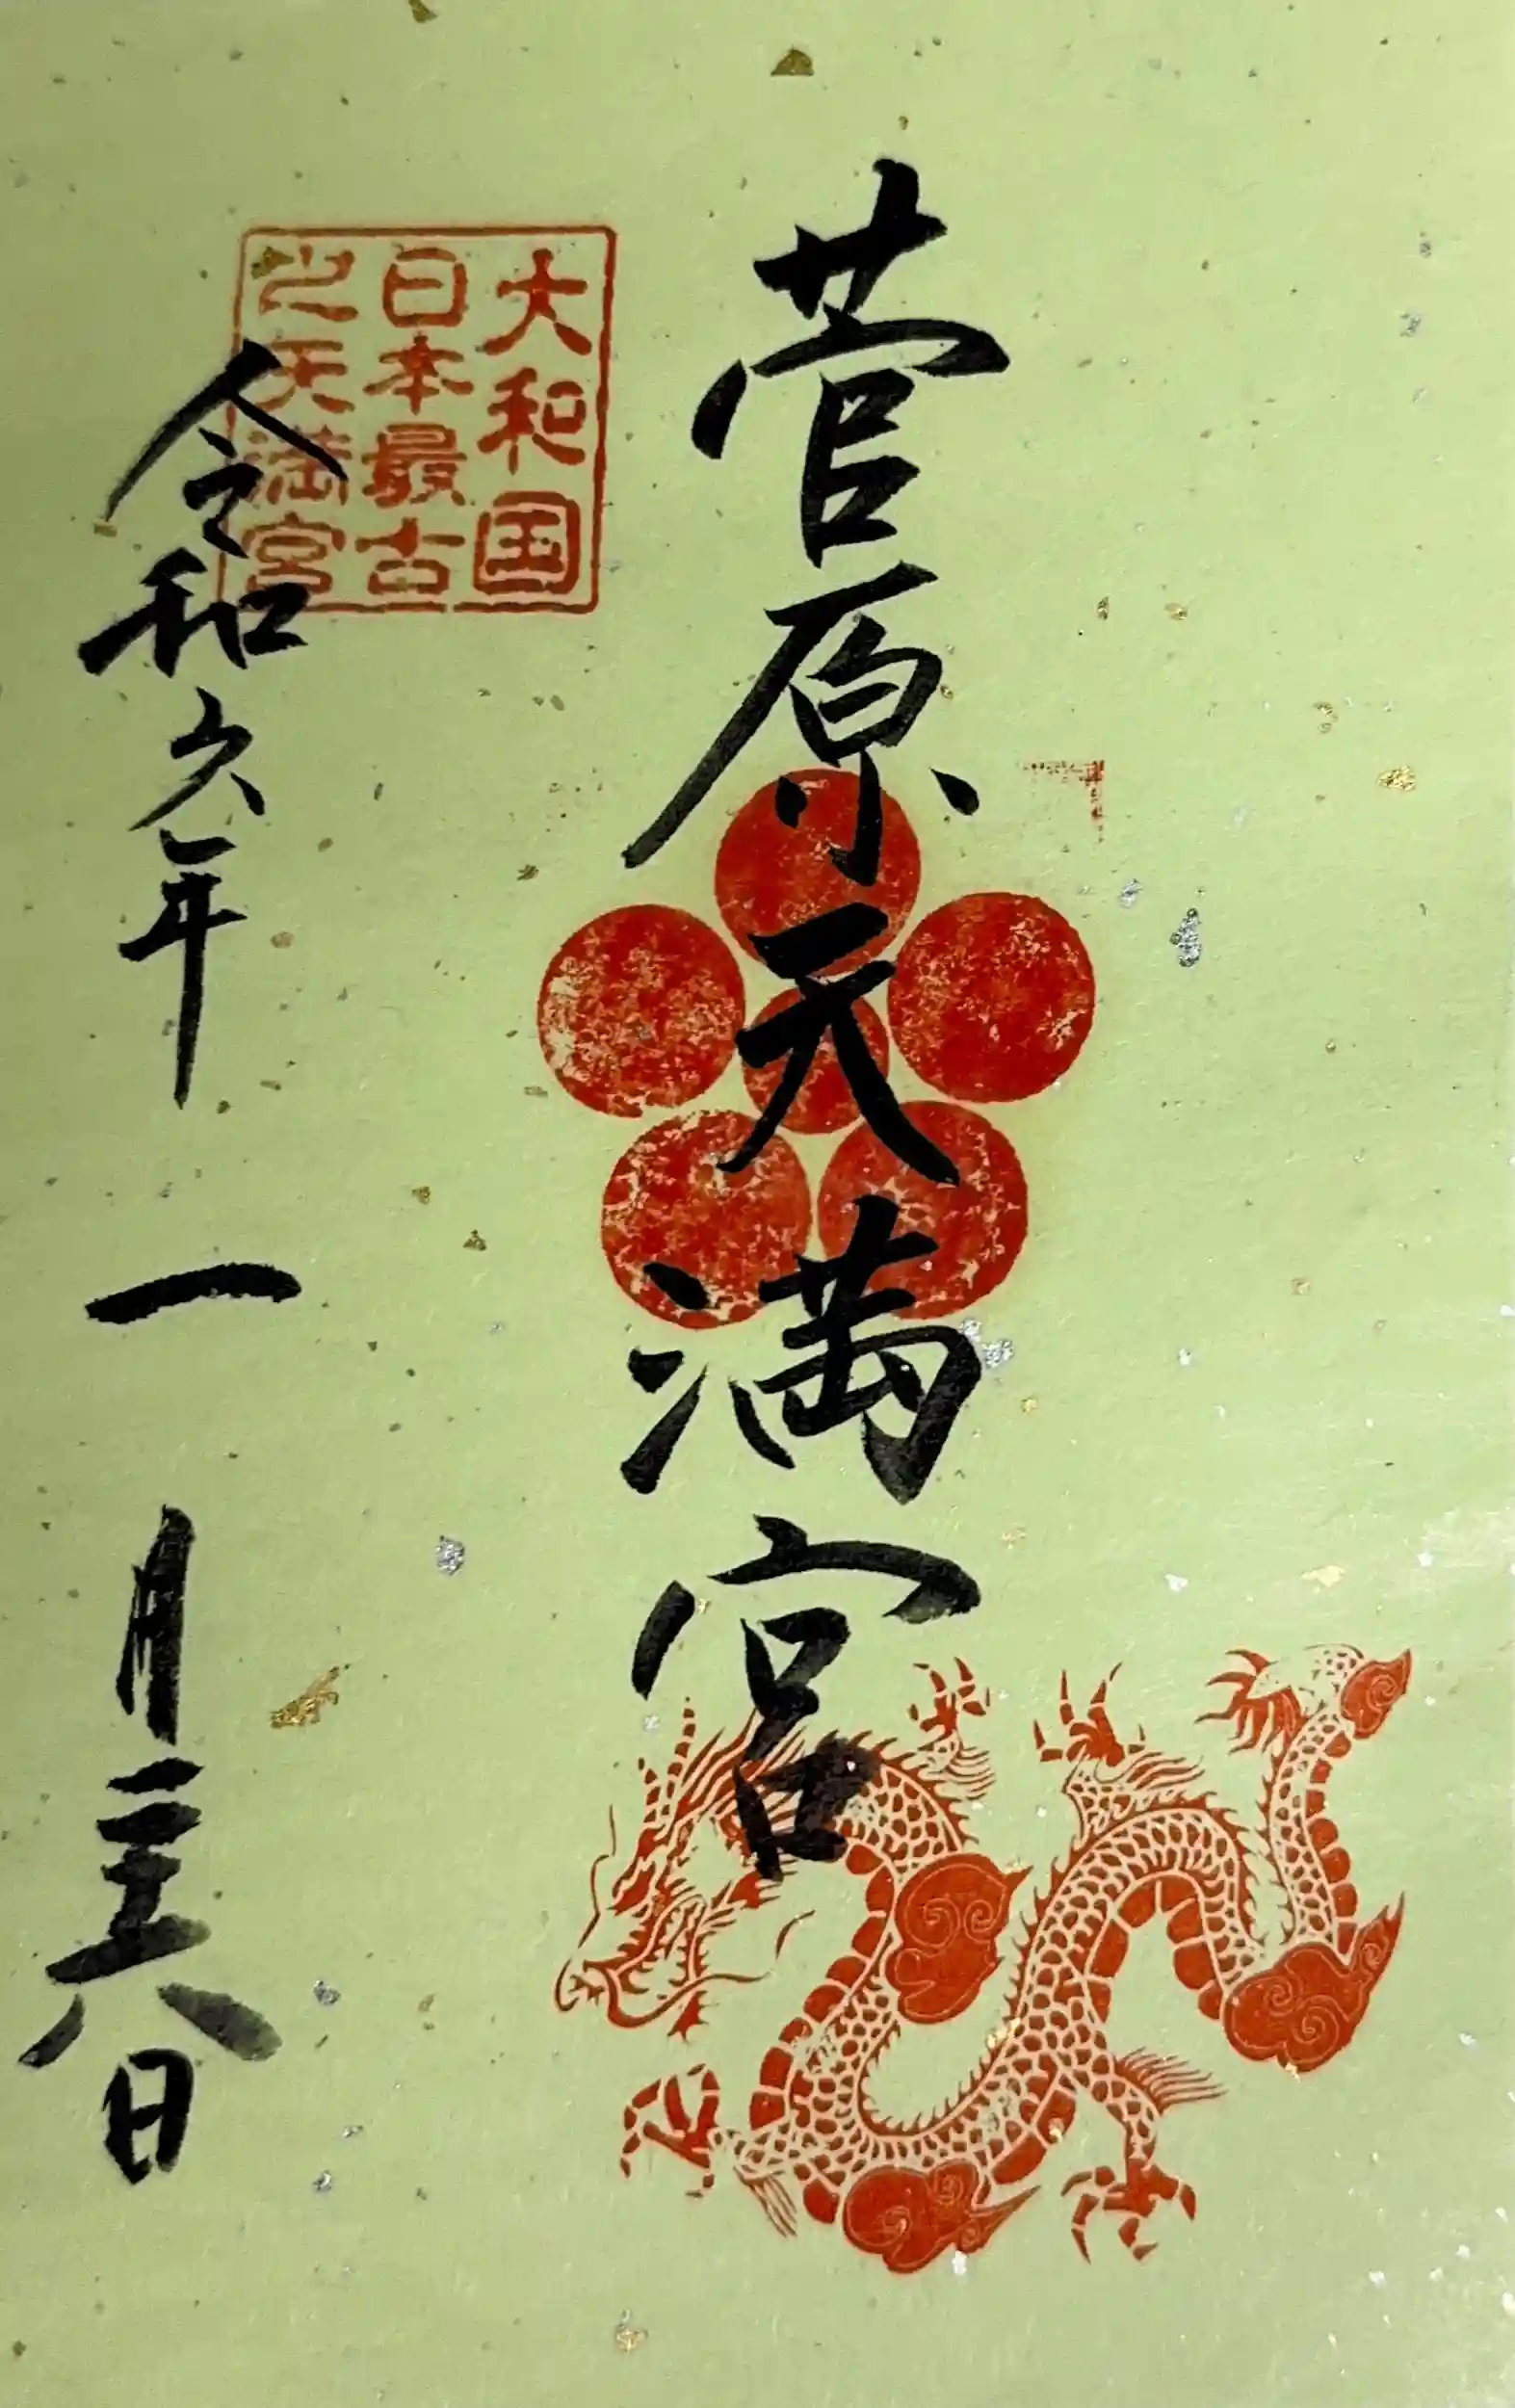 菅原天満宮
大和国
日本最古
之天満宮
令和六年一月二十八日